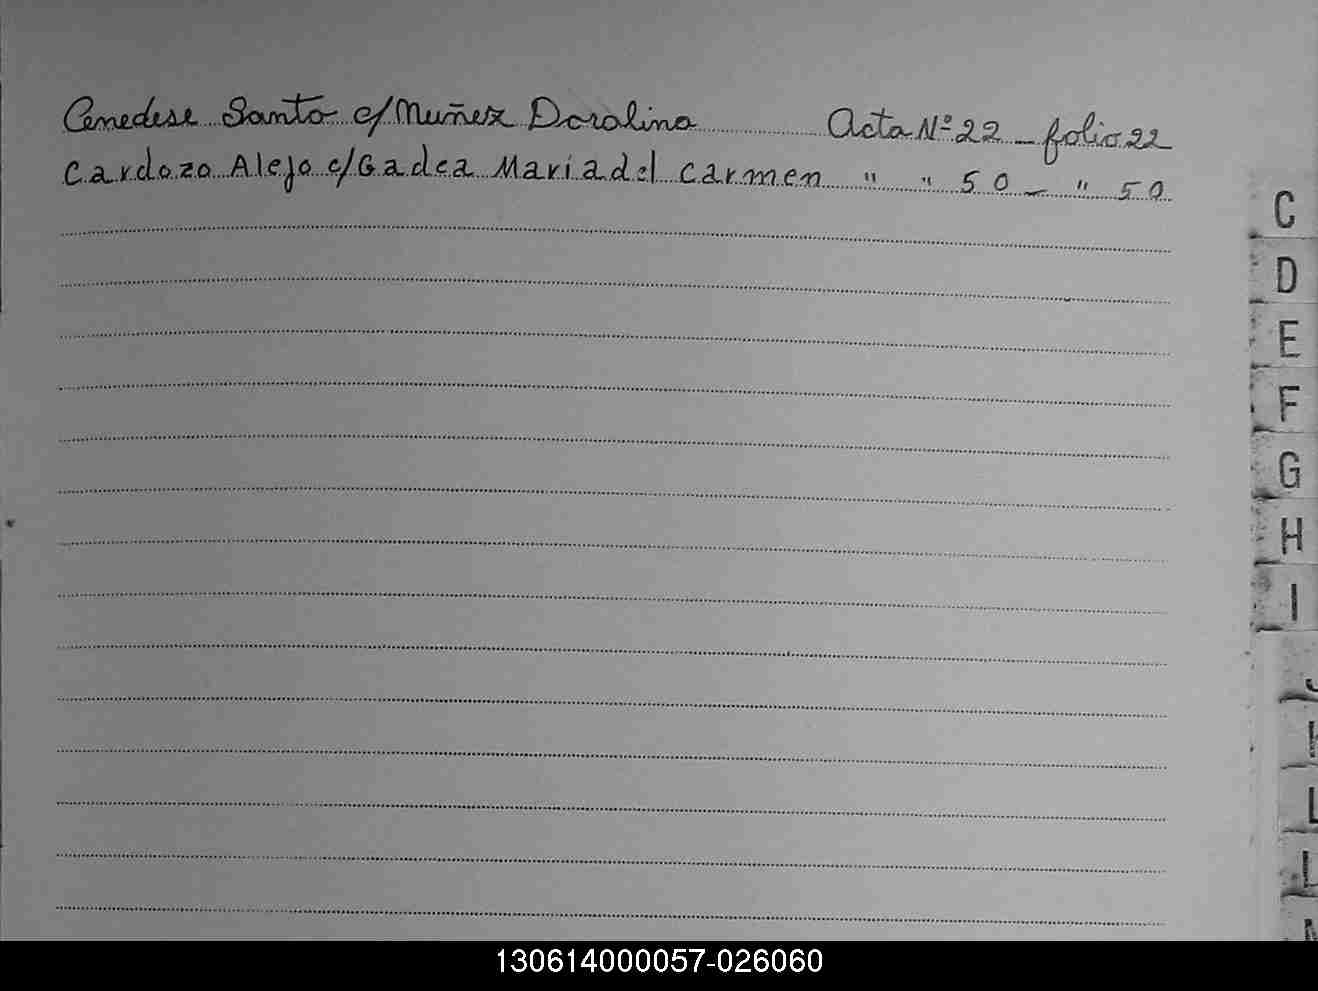 Cenedese Santo c/ Muñez Doralina Acta Nº 22 — folio 22
Cardozo Alejo c/ Gadea Maria del Carmen " " 50 — " 50
C
D
E
F
G
H
I
J
L
130614000057-026060